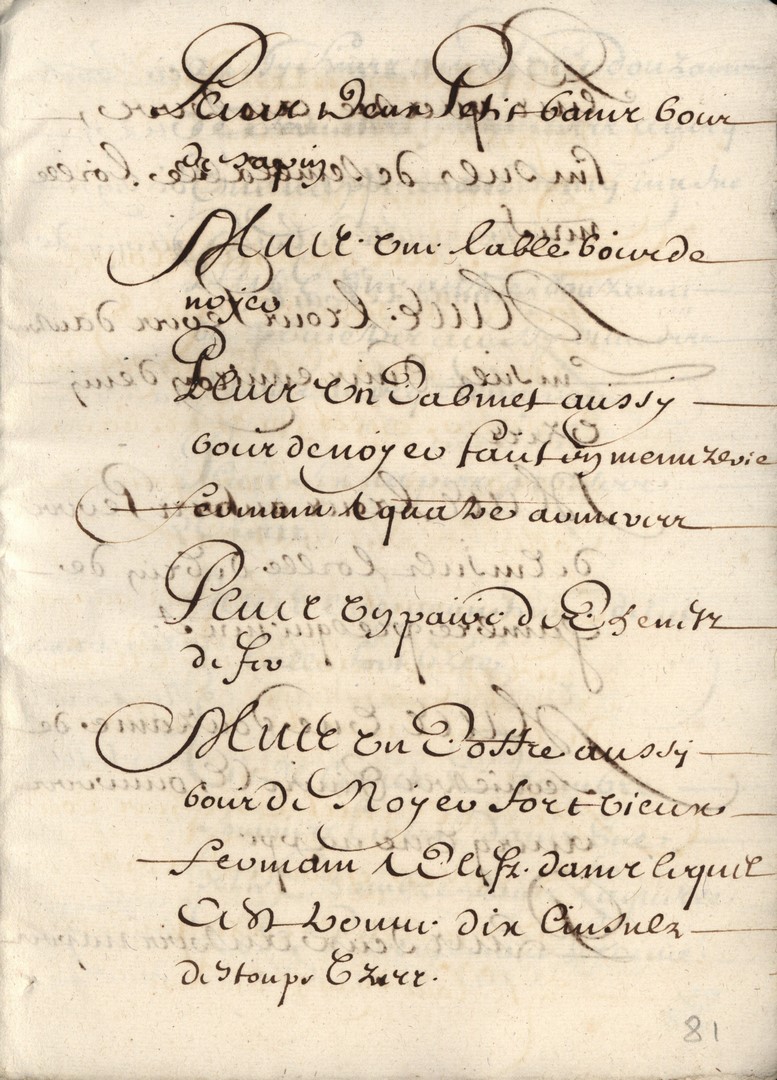 Plus deux Petit bancz bois
de sapin
Plus une table bois de
noyer
Plus un Cabinet aussy
bois de noyer sant menuzerie
fermant a quatre
Plus un paire de Chenetz
de fer
Plus un Coffre aussy
bois de Noyer fort vieux
fermant a Clefz dans lequel
a est trouve dix linsulz
de stoupe
81